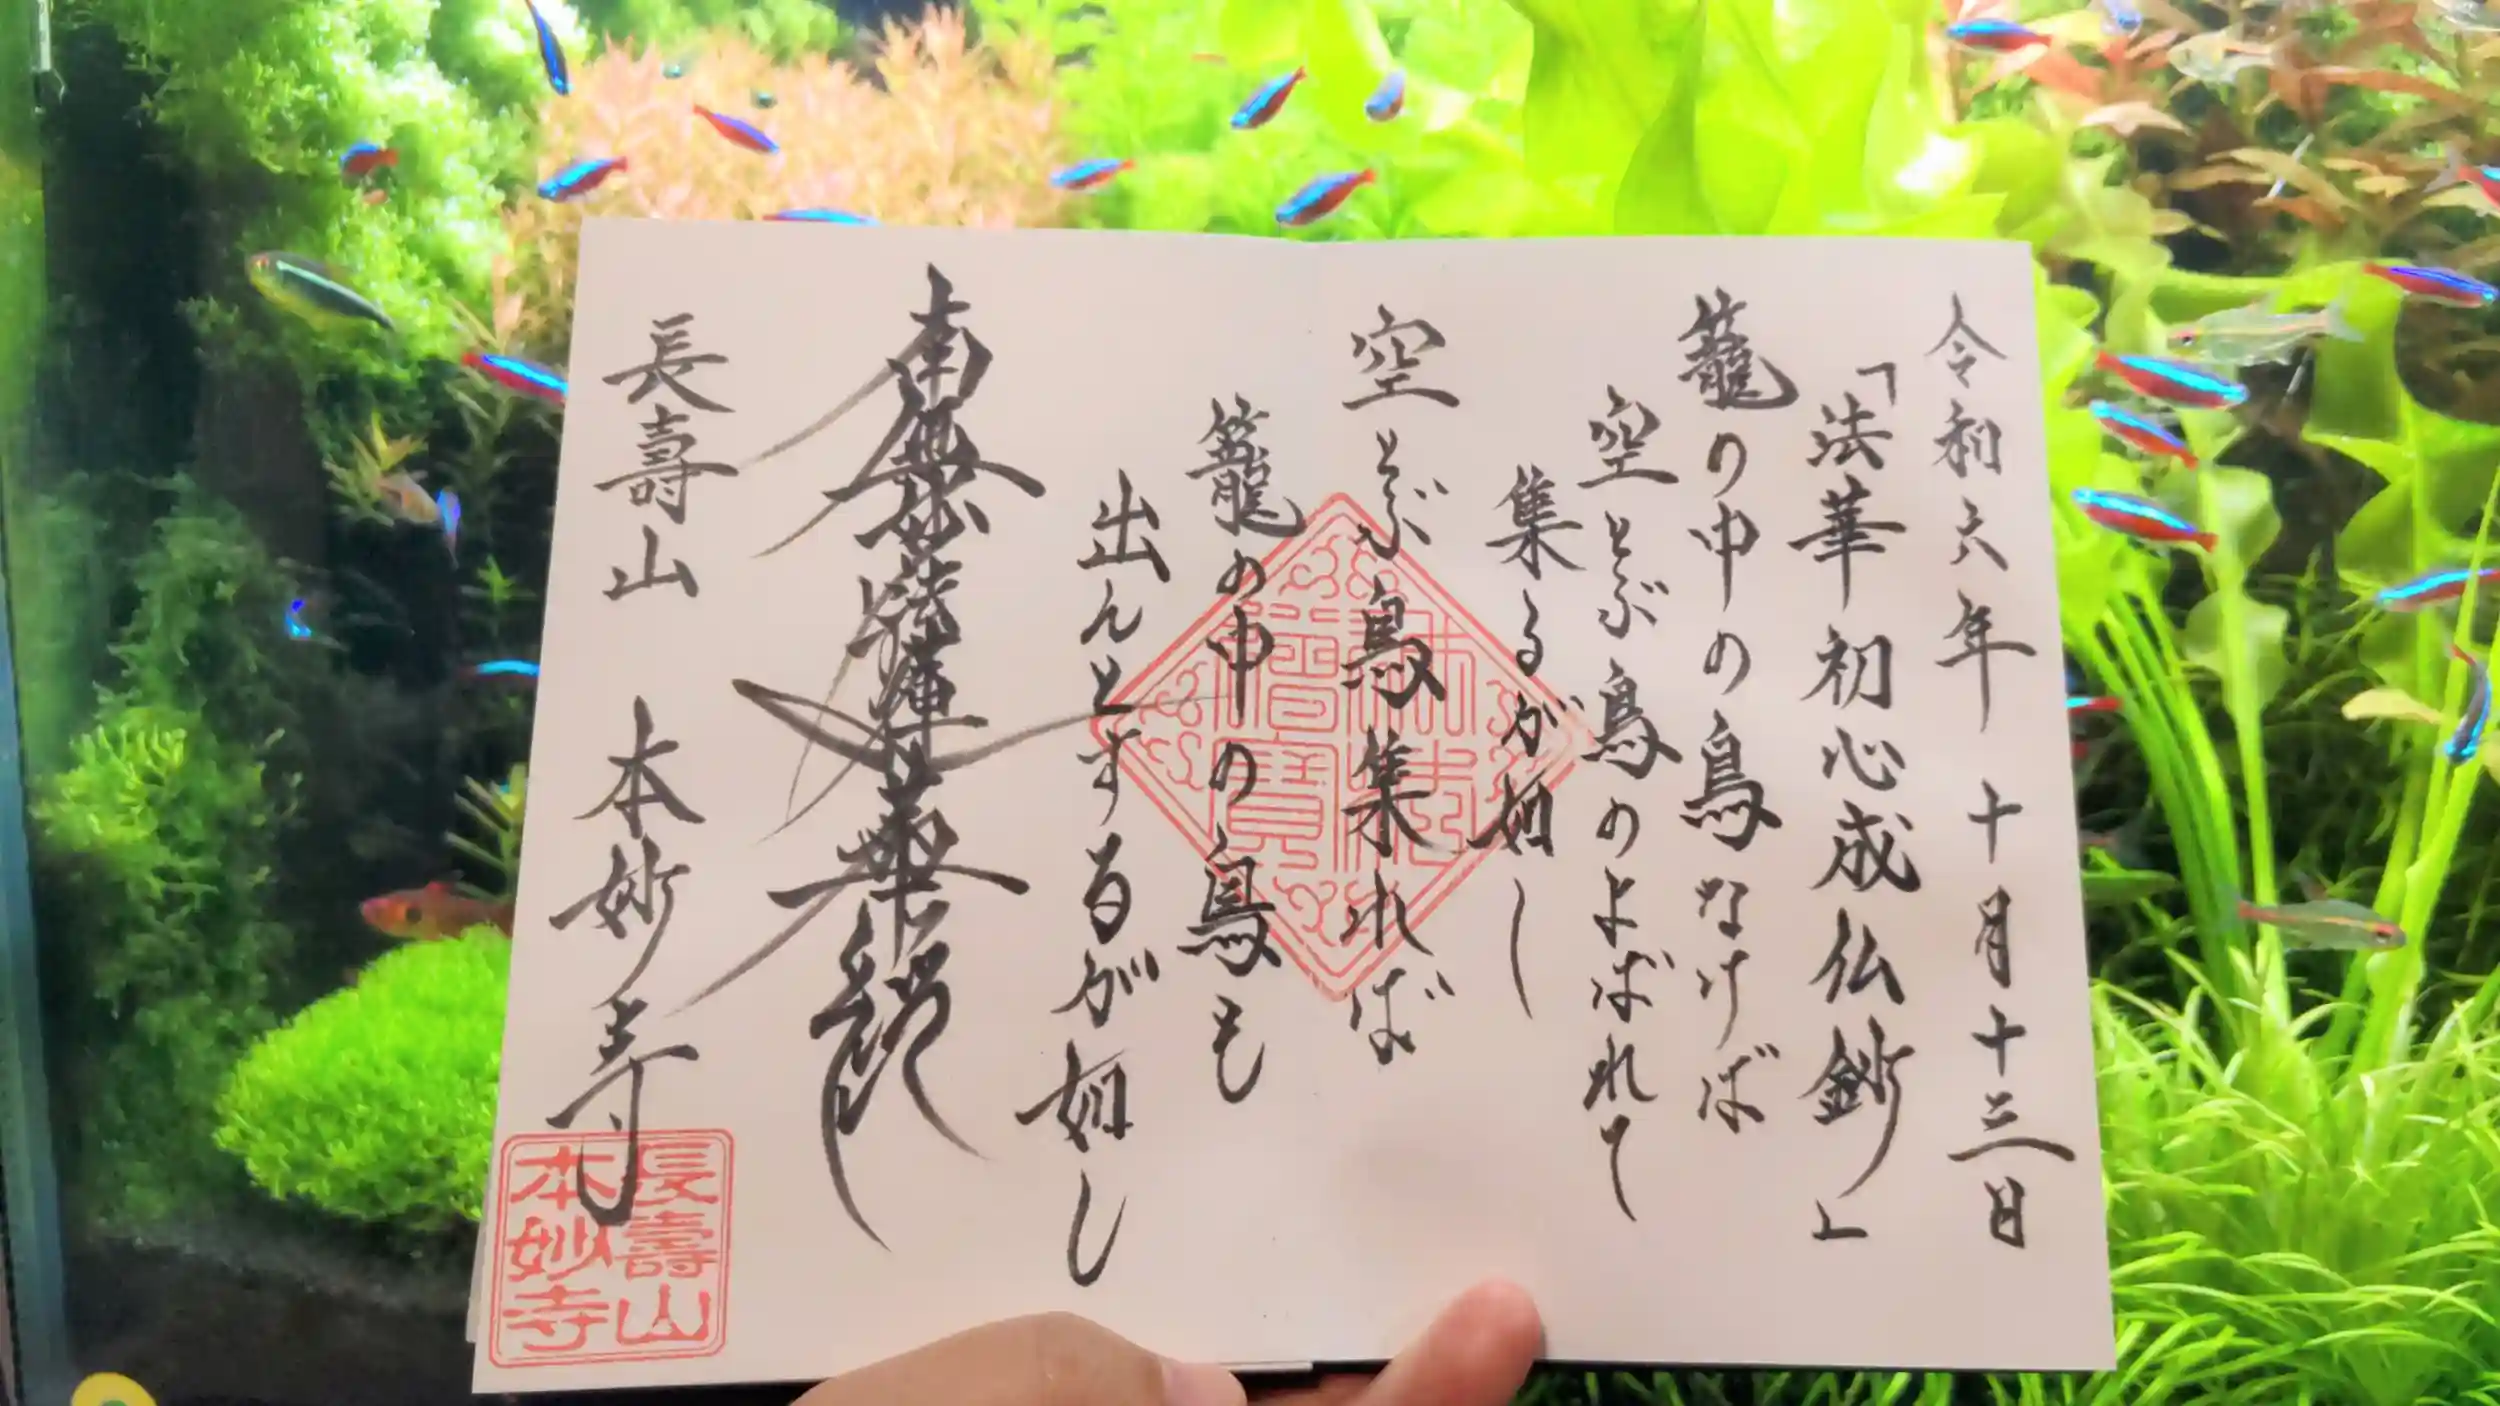 令和六年 十月十三日
「法華初心成仏鈔」
籠の中の鳥なけば
空とぶ鳥のよばれて
集るが如し
空とぶ鳥集れば
籠の中の鳥も
出んとするが如し
南無妙法蓮華経
長壽山 本妙寺
佛法僧寳
長壽山
本妙寺